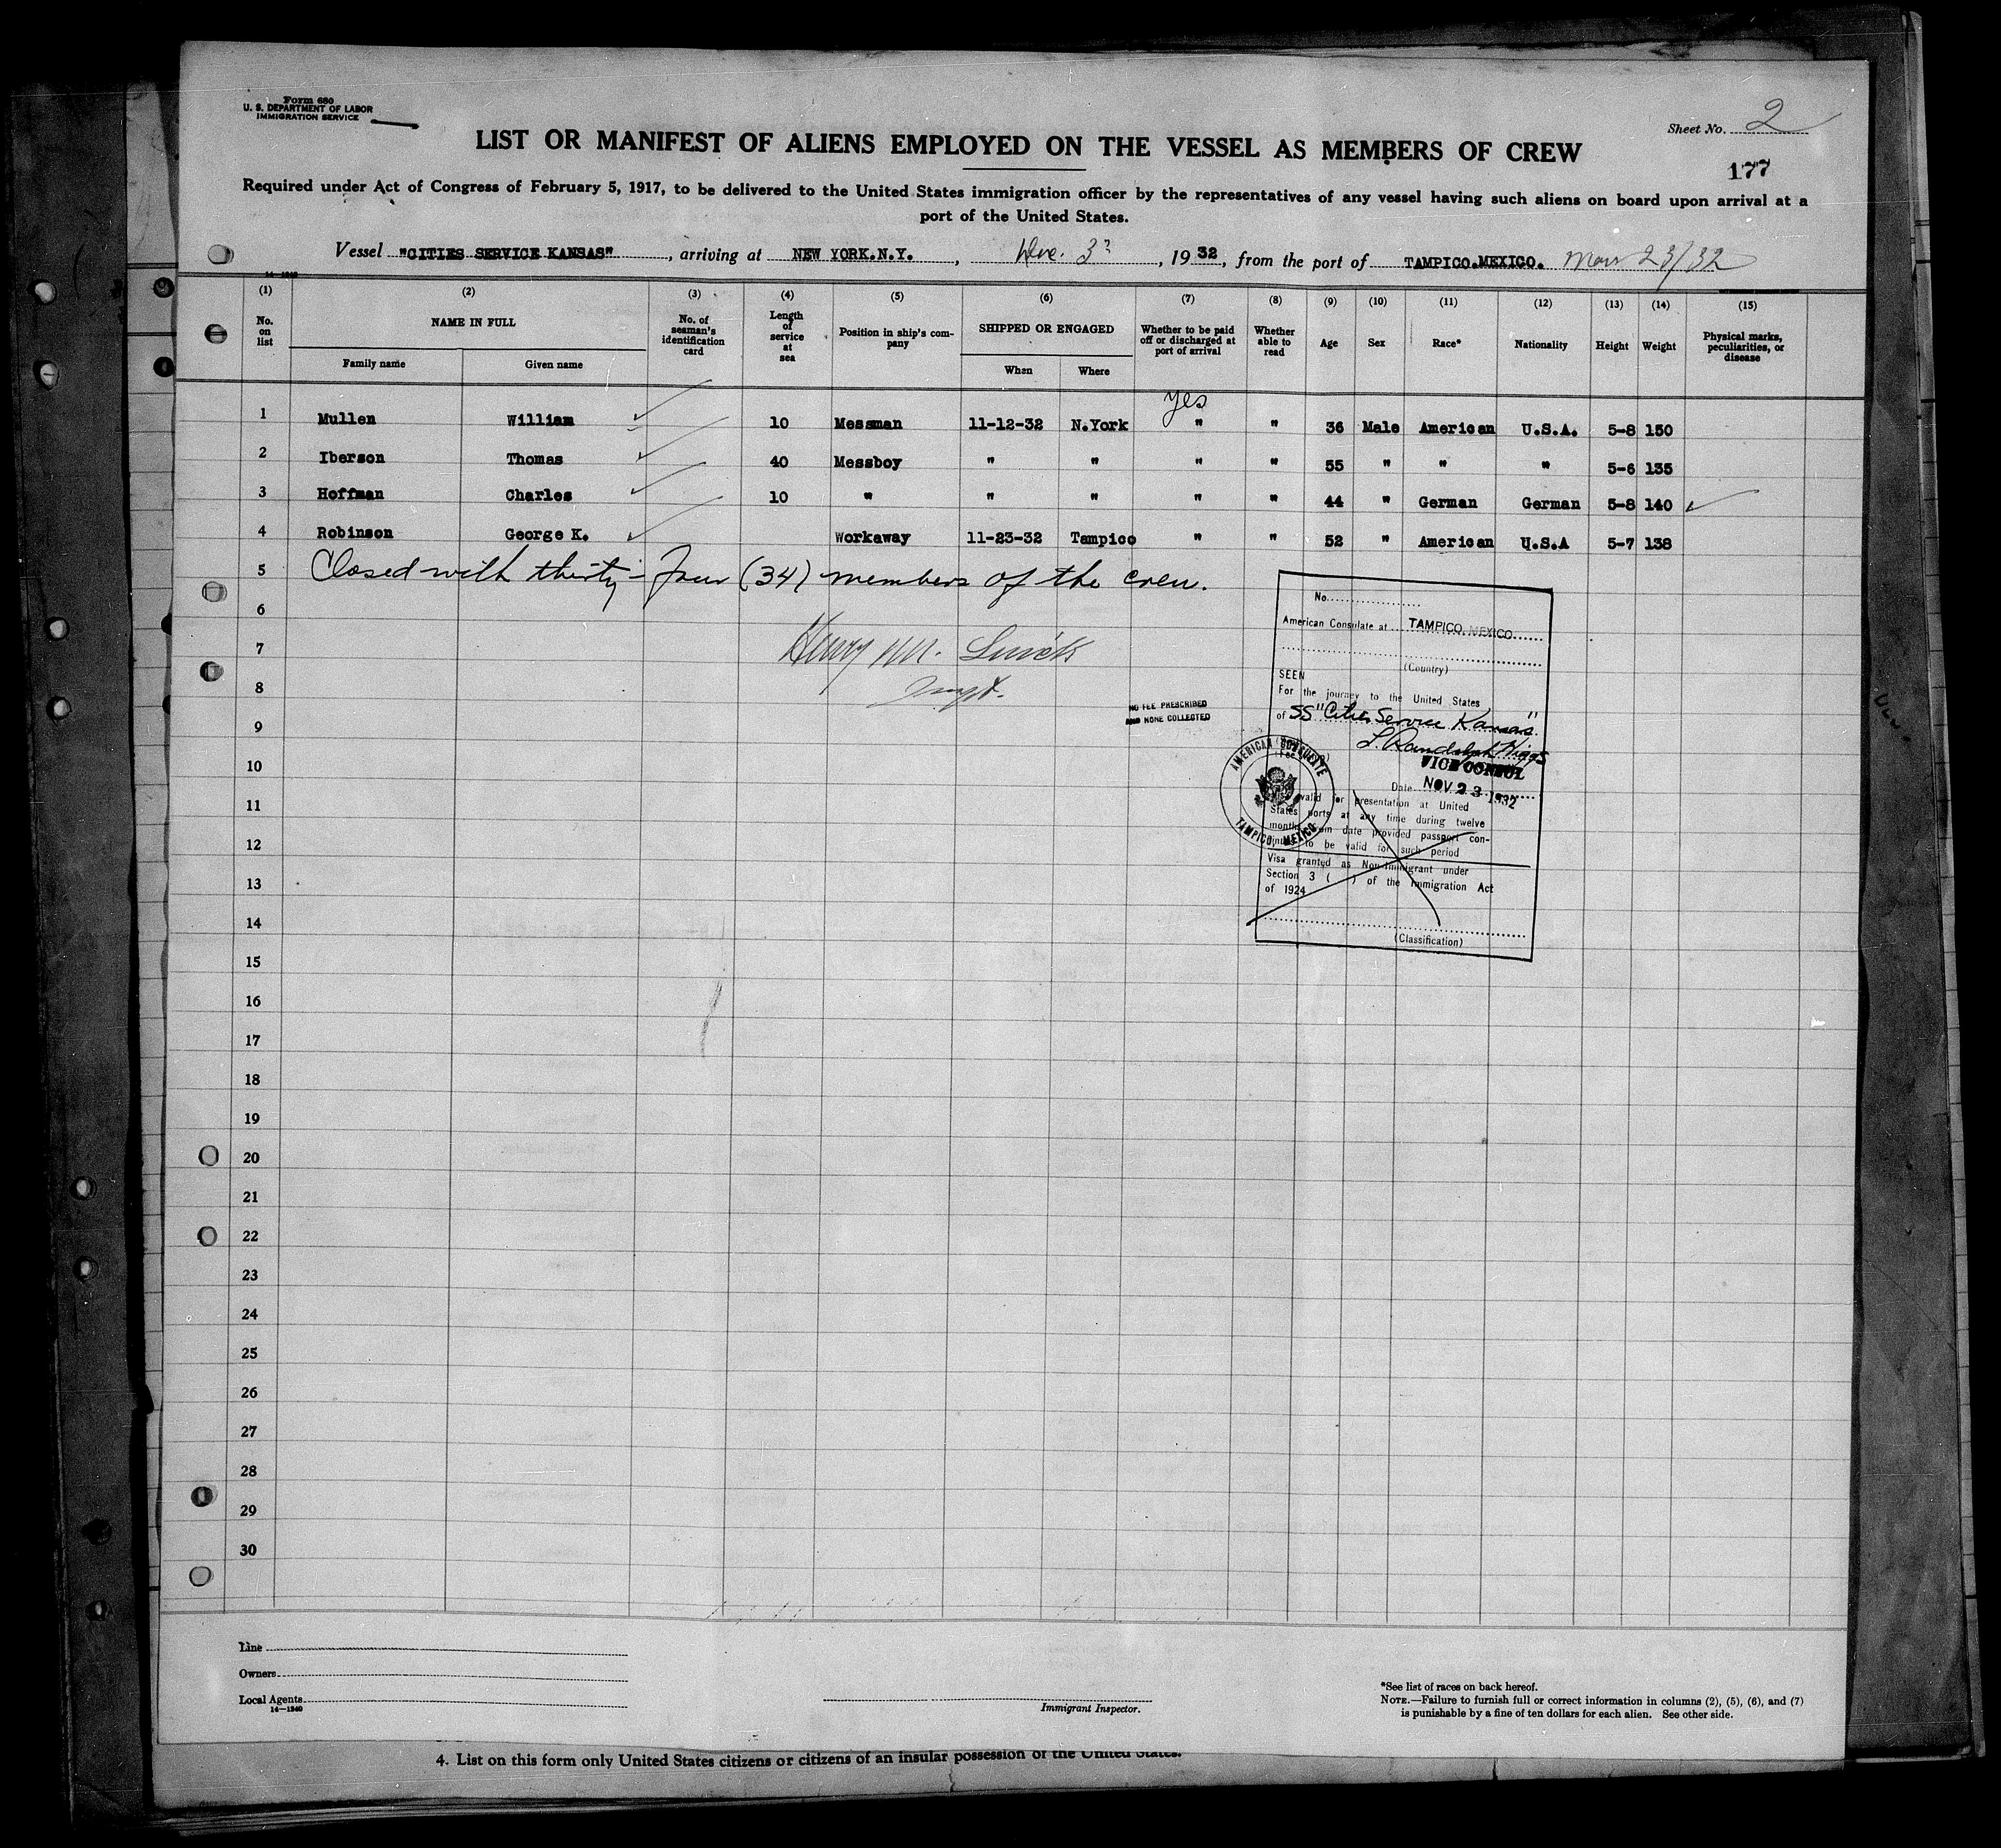 Form 680
U. S. DEPARTMENT OF LABOR
IMMIGRATION SERVICE
Sheet No. 2
LIST OR MANIFEST OF ALIENS EMPLOYED ON THE VESSEL AS MEMBERS OF CREW
177
Required under Act of Congress of February 5, 1917, to be delivered to the United States immigration officer by the representatives of any vessel having such aliens on board upon arrival at a
port of the United States.
Vessel "CITIES SERVICE KANSAS", arriving at NEW YORK.N.Y., 3, 1932, from the port of TAMPICO.MEXICO. 23/32
14-1240
(1) (2) (3) (4) (5) (6) (7) (8) (9) (10) (11) (12) (13) (14) (15)
No. on list NAME IN FULL No. of seaman's identification card Length of service at sea Position in ship's company SHIPPED OR ENGAGED Whether to be paid off or discharged at port of arrival Whether able to read Age Sex Race* Nationality Height Weight Physical marks, peculiarities, or disease
Family name Given name When Where
yes
1 Mullen William 10 Messman 11-12-32 N.York " " 36 Male American U.S.A. 5-8 150
2 Iberson Thomas 40 Messboy " " " " 55 " " " 5-6 135
3 Hoffman Charles 10 " " " " " 44 " German German 5-8 140
4 Robinson George K. Workaway 11-23-32 Tampico " " 52 " American U.S.A 5-7 138
5 Closed with thirty-four (34) members of the crew.
6
7 Henry M.
8
9
10
11
12
13
14
15
16
17
18
19
20
21
22
23
24
25
26
27
28
29
30
No.
American Consulate at TAMPICO, MEXICO
(Country)
SEEN
For the journey to the United States
of SS "Cities Service Kansas"
L. Randolph Higgs
VICE CONSUL
Date NOV 23 1932
valid for presentation at United
States ports at any time during twelve
months from date provided passport con-
tinues to be valid for such period
Visa granted as Non-Immigrant under
Section 3 ( ) of the Immigration Act
of 1924
(Classification)
NO FEE PRESCRIBED
AND NONE COLLECTED
AMERICAN CONSULATE
TAMPICO, MEXICO
Line
Owners
Local Agents
14-1240
Immigrant Inspector.
*See list of races on back hereof.
NOTE.—Failure to furnish full or correct information in columns (2), (5), (6), and (7)
is punishable by a fine of ten dollars for each alien. See other side.
4. List on this form only United States citizens or citizens of an insular possession of the United States.